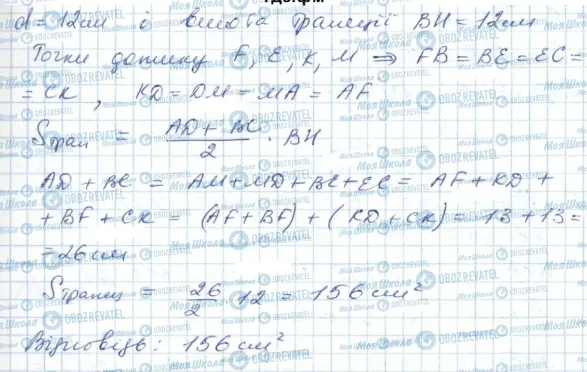 d = 12 см і висота трапеції BH = 12 см
Точки дотику F, E, K, M ⇒ FB = BE = EC =
= CK, KD = DM = MA = AF
Sтрап = (AD + BC)/2 · BH
AD + BC = AM + MD + BE + EC = AF + KD +
+ BF + CK = (AF + BF) + (KD + CK) = 13 + 13 =
= 26 см
Sтрапец = 26/2 · 12 = 156 см²
Відповідь: 156 см²